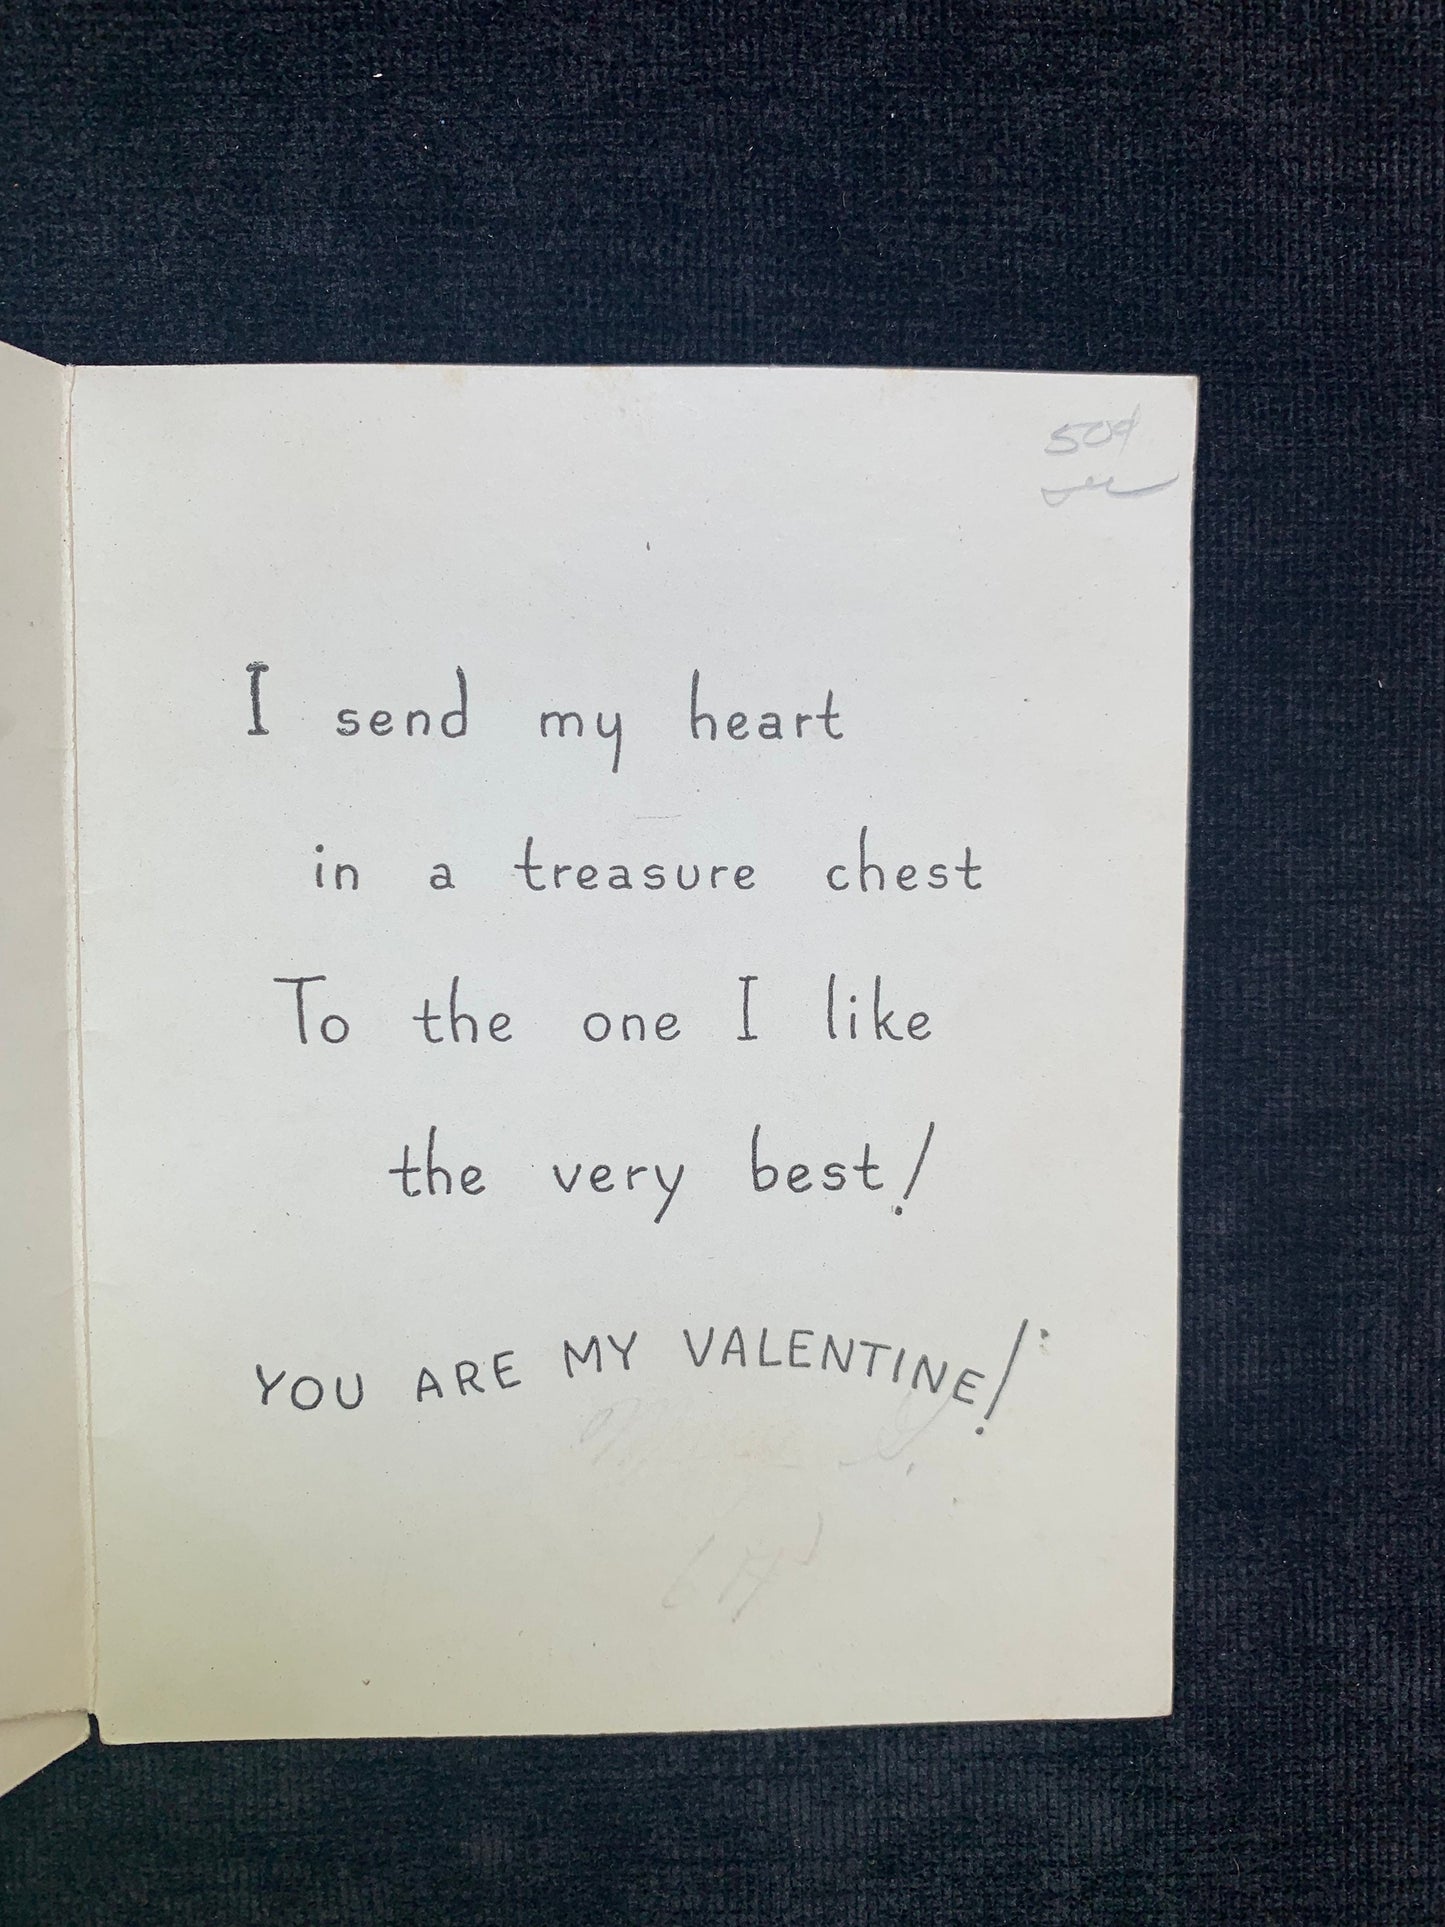 50¢
I send my heart
in a treasure chest
To the one I like
the very best!
YOU ARE MY VALENTINE!